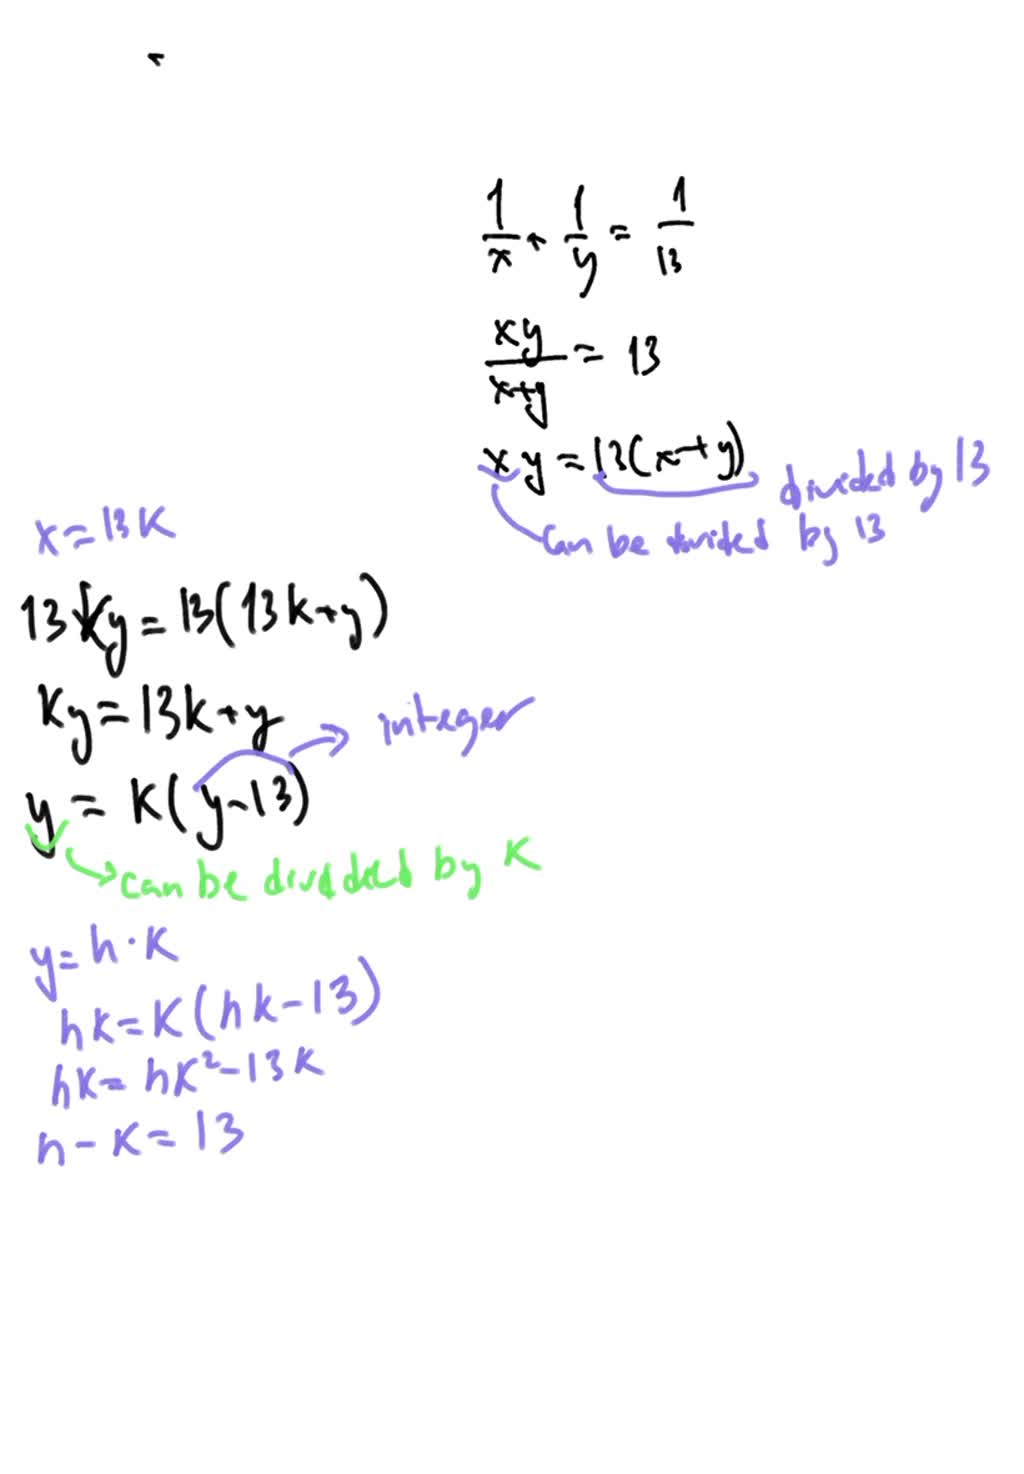 1/x + 1/y = 1/13
xy/x+y = 13
xy = 13(x+y)
divided by 13
can be divided by 13
x = 13K
13Ky = 13(13k+y)
Ky = 13k+y
integer
y = K(y-13)
can be divided by K
y = h · K
hk = K(hk-13)
hK = hK²-13K
h - K = 13